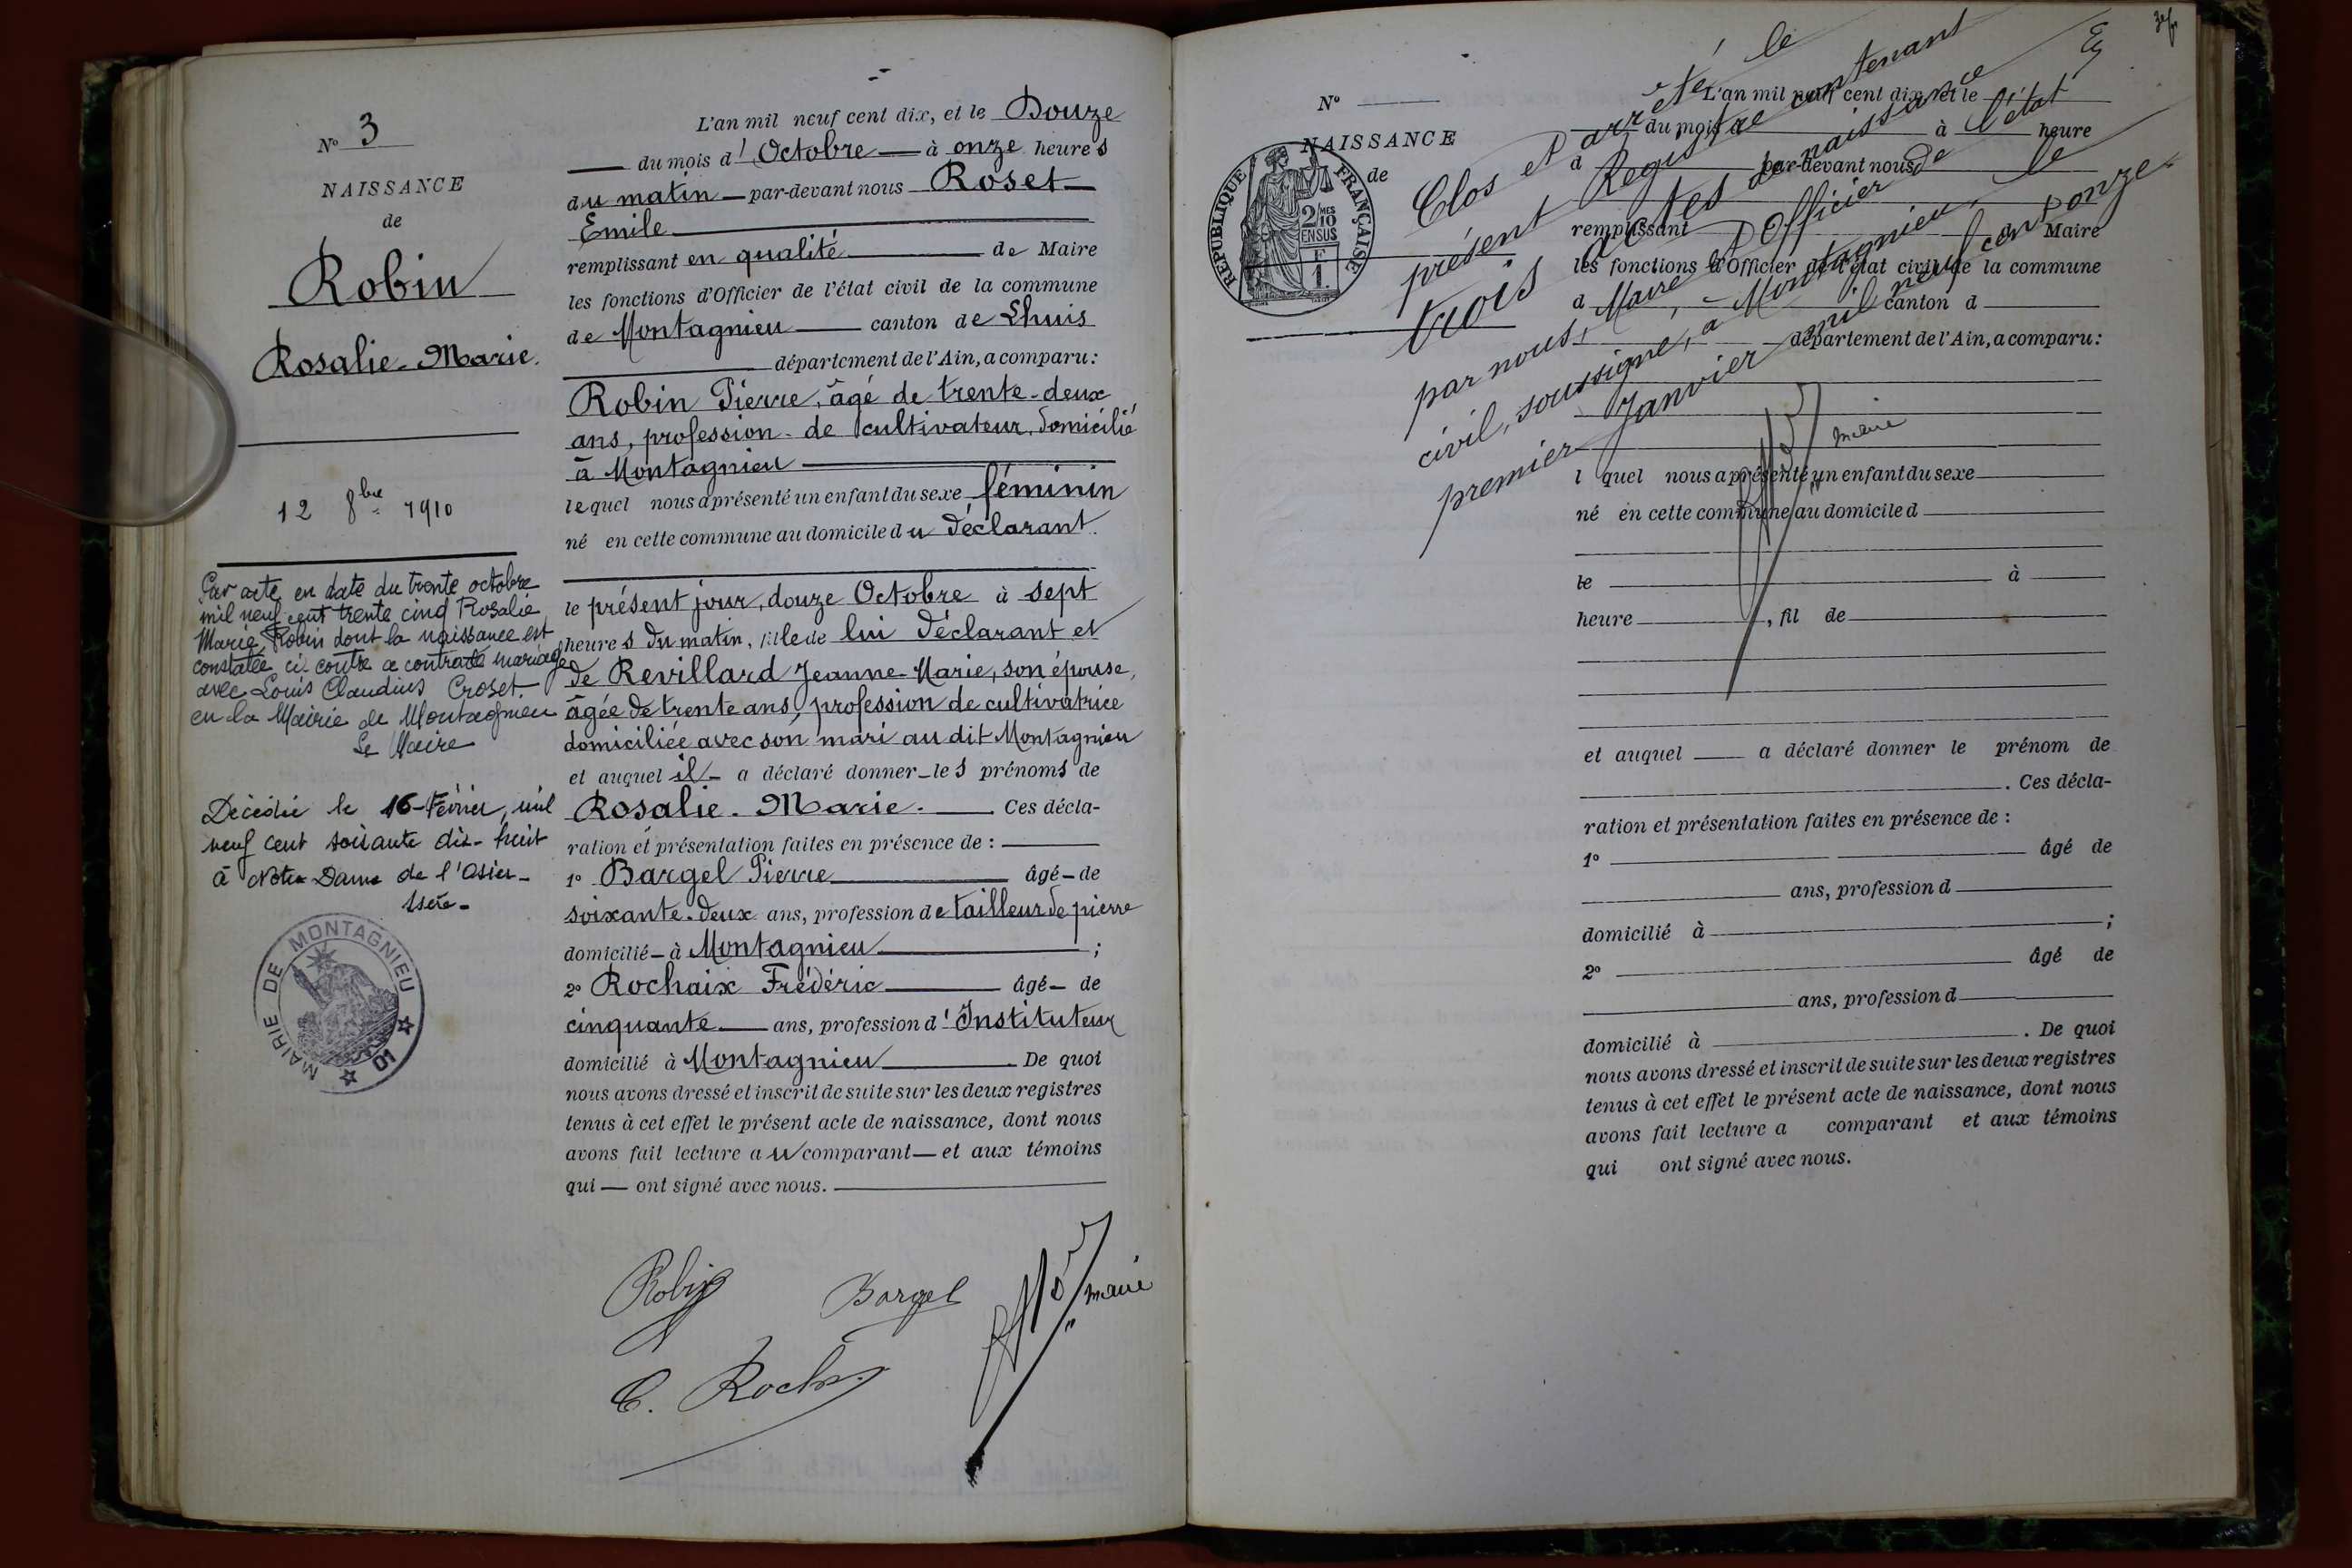 N° 3
NAISSANCE
de
Robin
Rosalie-Marie.
12 8bre 1910
Par acte en date du trente octobre
mil neuf cent trente cinq Rosalie
Marie Robin dont la naissance est
constatée ci-contre a contracté mariage
avec Louis Claudius Croset.
en la Mairie de Montagnieu
Le Maire
Décédée le 16 Février, mil
neuf cent soixante dix-huit
à Notre Dame de l'Osier-
Isère-
MAIRIE DE MONTAGNIEU
01
L'an mil neuf cent dix, et le Douze
du mois d'Octobre à onze heures
du matin par-devant nous Roset
Emile
remplissant en qualité de Maire
les fonctions d'Officier de l'état civil de la commune
de Montagnieu canton de Lhuis
département de l'Ain, a comparu :
Robin Pierre, âgé de trente-deux
ans, profession de cultivateur, domicilié
à Montagnieu
lequel nous a présenté un enfant du sexe féminin
né en cette commune au domicile du déclarant.
le présent jour, douze Octobre à sept
heures du matin, fille de lui déclarant et
de Revillard Jeanne-Marie, son épouse,
âgée de trente ans, profession de cultivatrice
domiciliée avec son mari au dit Montagnieu
et auquel il a déclaré donner les prénoms de
Rosalie-Marie. Ces décla-
ration et présentation faites en présence de :
1° Bargel Pierre âgé de
soixante-deux ans, profession de tailleur de pierre
domicilié à Montagnieu ;
2° Rochaix Frédéric âgé de
cinquante ans, profession d'Instituteur
domicilié à Montagnieu De quoi
nous avons dressé et inscrit de suite sur les deux registres
tenus à cet effet le présent acte de naissance, dont nous
avons fait lecture au comparant et aux témoins
qui ont signé avec nous.
Robin Bargel
maire
N°
NAISSANCE
de
RÉPUBLIQUE FRANÇAISE
2/10 MES
EN SUS
F
1.
Clos et arrêté le
présent Registre contenant
trois actes de naissance
par nous, Maire et Officier de l'état
civil, soussigné, à Montagnieu, le
premier Janvier mil neuf cent onze.
maire
L'an mil neuf cent dix, et le
du mois d à heure
d par-devant nous
remplissant Maire
les fonctions d'Officier de l'état civil de la commune
d canton d
département de l'Ain, a comparu :
l quel nous a présenté un enfant du sexe
né en cette commune au domicile d
le à
heure , fil de
et auquel a déclaré donner le prénom de
. Ces décla-
ration et présentation faites en présence de :
1° âgé de
ans, profession d
domicilié à ;
2° âgé de
ans, profession d
domicilié à . De quoi
nous avons dressé et inscrit de suite sur les deux registres
tenus à cet effet le présent acte de naissance, dont nous
avons fait lecture a comparant et aux témoins
qui ont signé avec nous.